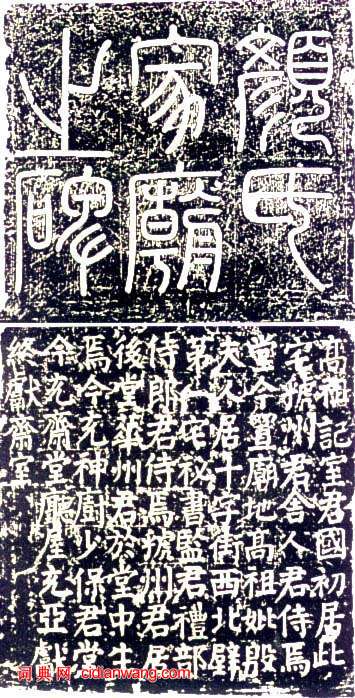 顏氏
家廟
之碑
高祖記室君國初居此
宅虢州君舍人君侍焉
堂今置廟地高祖妣殷
夫人居十字街西北壁
第一宅祕書監君禮部
侍郎君侍焉虢州君居
後堂華州君於堂中生
焉今充神廚少保君堂
今充齋堂廳屋充亞獻
終獻齋室
词典网 cidianwang.com